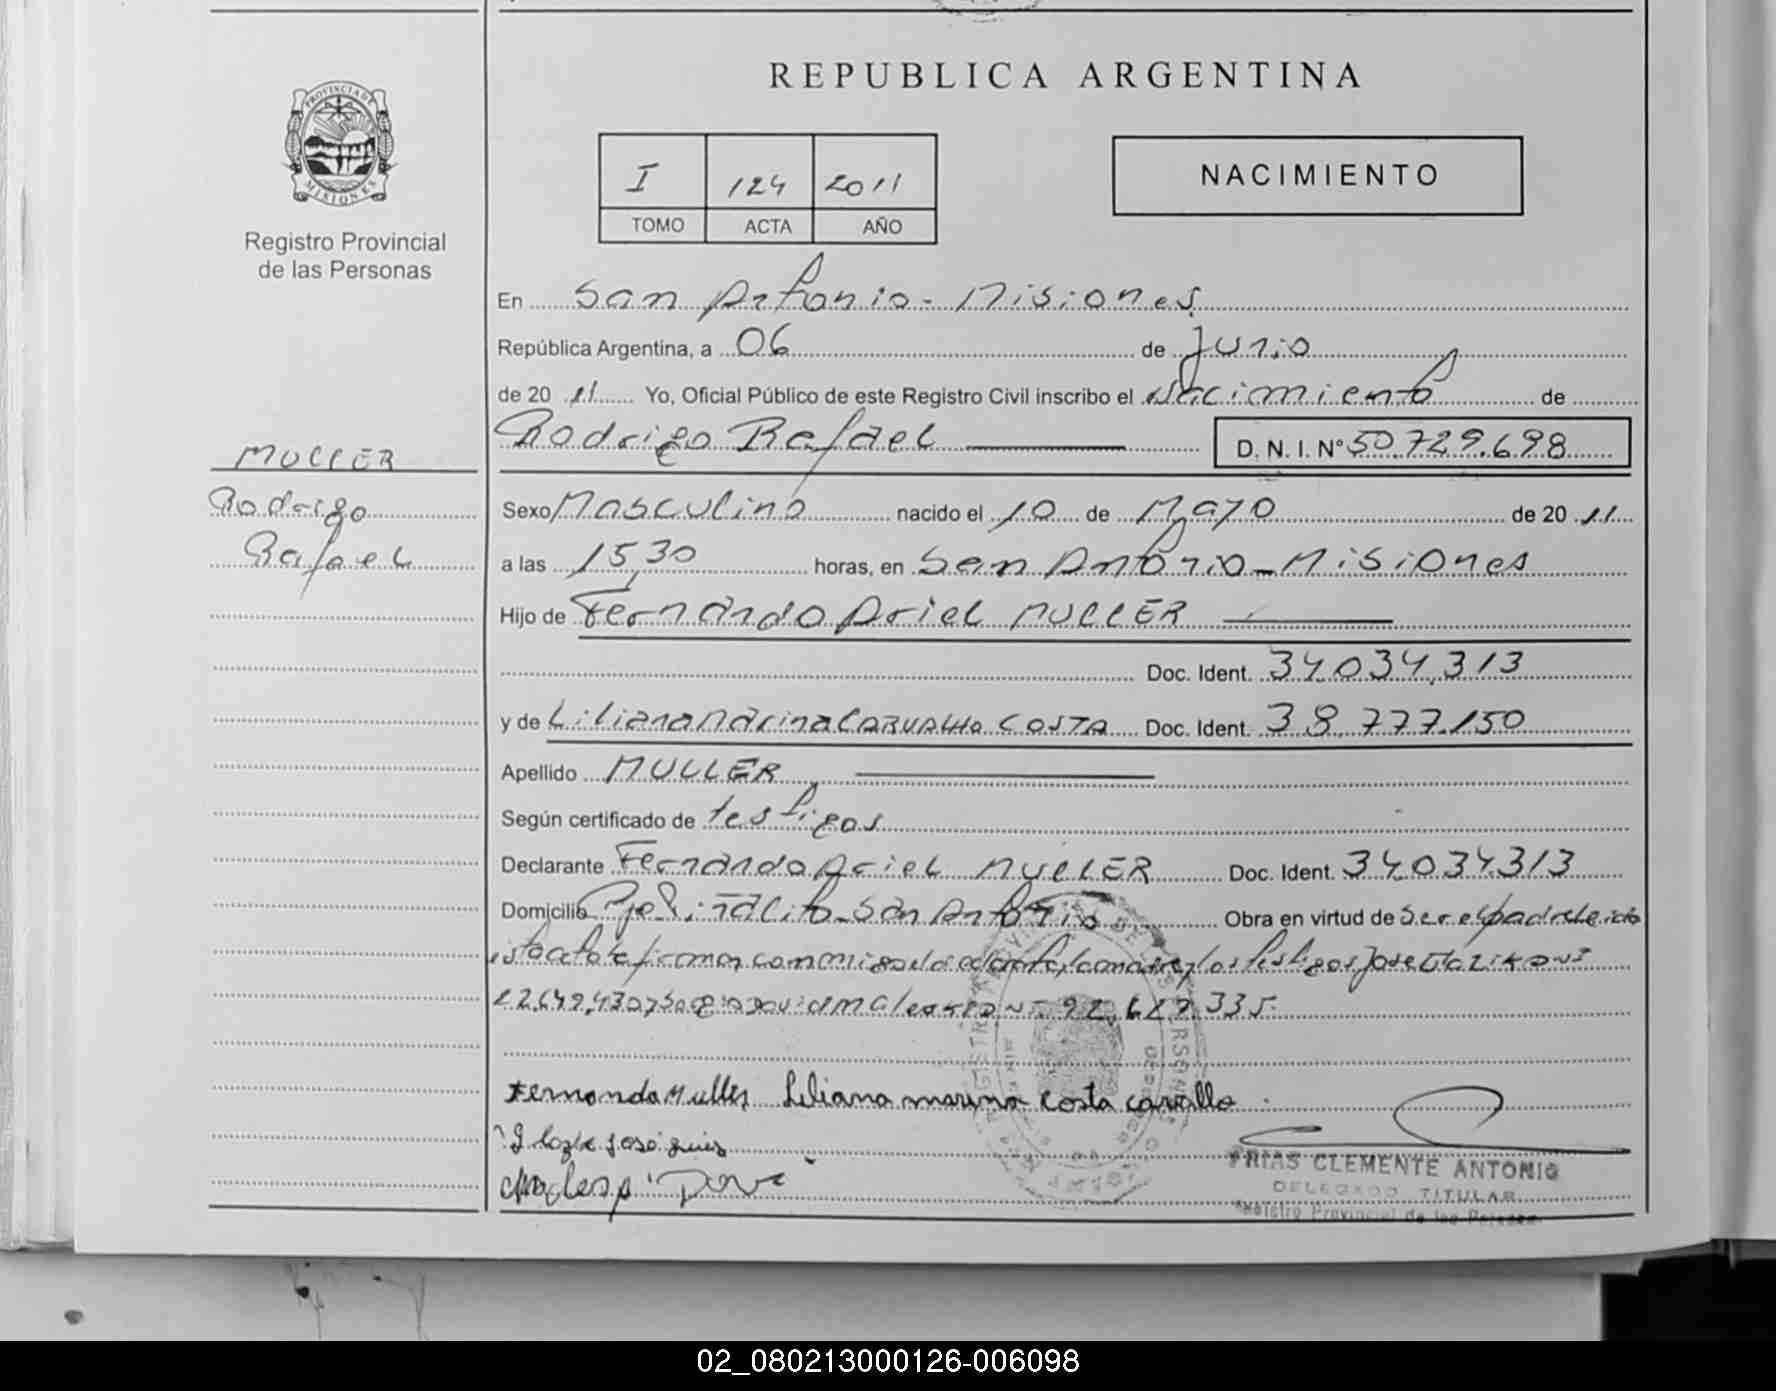 REPUBLICA ARGENTINA
PROVINCIA DE
MISIONES
Registro Provincial
de las Personas
I 124 2011
TOMO ACTA AÑO
NACIMIENTO
En San Antonio - Misiones
República Argentina, a 06 de Junio
de 20 11 Yo, Oficial Público de este Registro Civil inscribo el Nacimiento de
Rodrigo Rafael D. N. I. Nº 50.729.698
MULLER
Rodrigo
Rafael
Sexo Masculino nacido el 10 de Mayo de 20 11
a las 15,30 horas, en San Antonio - Misiones
Hijo de Fernando Ariel MULLER
Doc. Ident. 34.034.313
y de Liliana Marina CARVALHO COSTA Doc. Ident. 38.777.150
Apellido MULLER
Según certificado de testigos
Declarante Fernando Ariel MULLER Doc. Ident. 34.034.313
Domicilio San Antonio Obra en virtud de ser el padre leida
esta acta la firman conmigo el declarante, la madre y los testigos Jose
92.617.335.
Fernando Muller Liliana marina costa carvallo
José
FRIAS CLEMENTE ANTONIO
DELEGADO TITULAR
Registro Provincial de las Personas
02_080213000126-006098